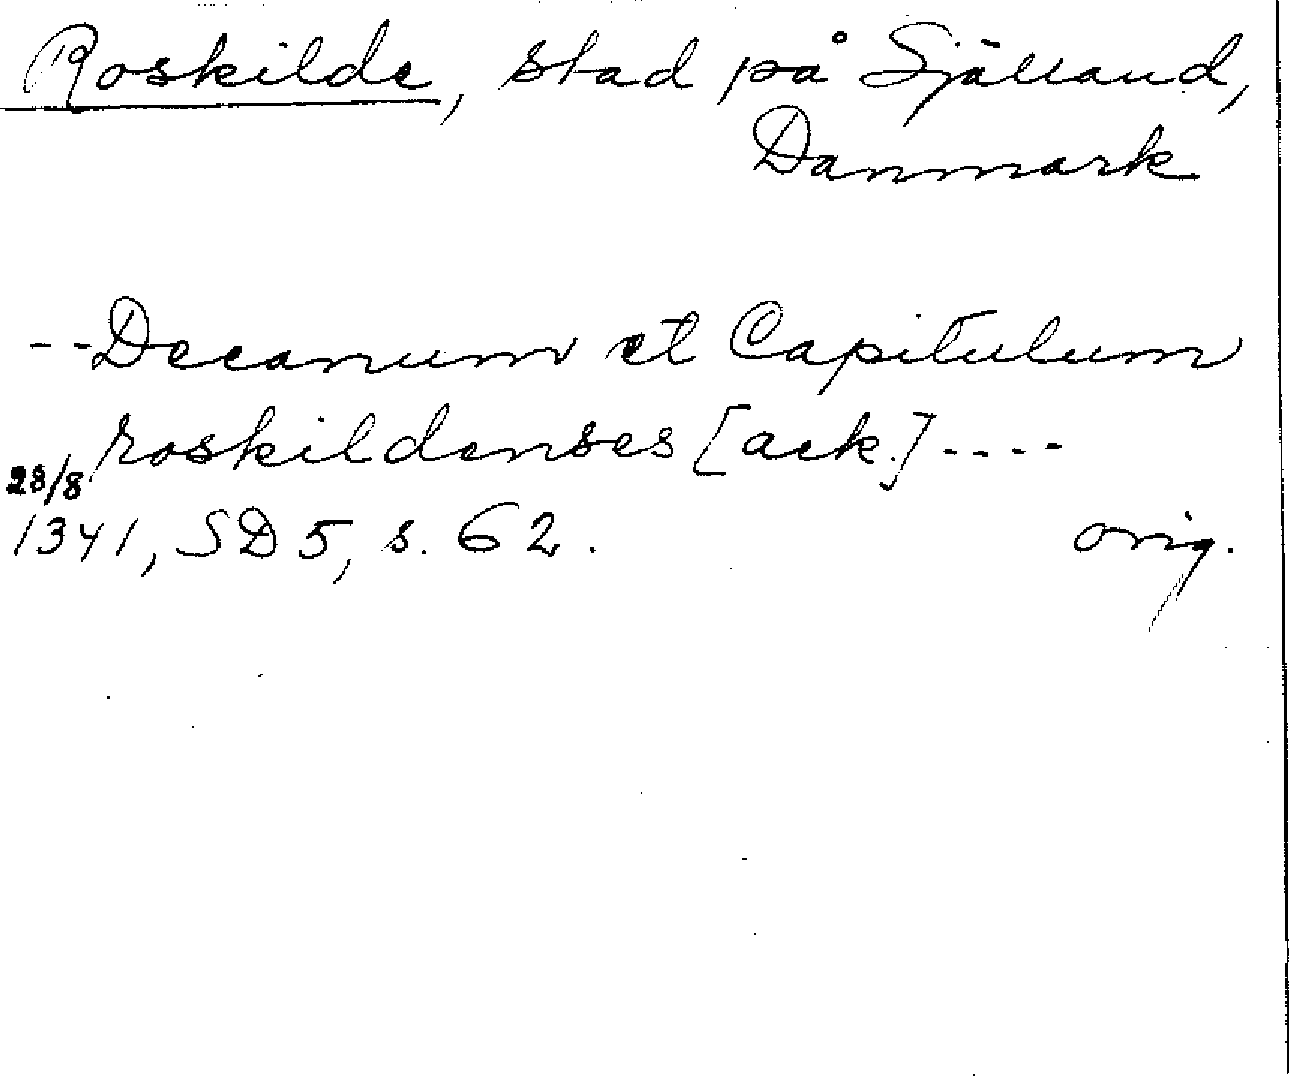 Roskilde, stad på Själland,
Danmark
--Decanum et Capitulum
roskildenses [ack.]----
28/8
1341, SD 5, s. 62. orig.